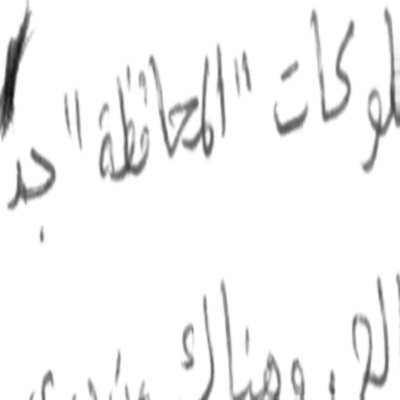 لوكات "المحافظة" جد
الح. وهناك